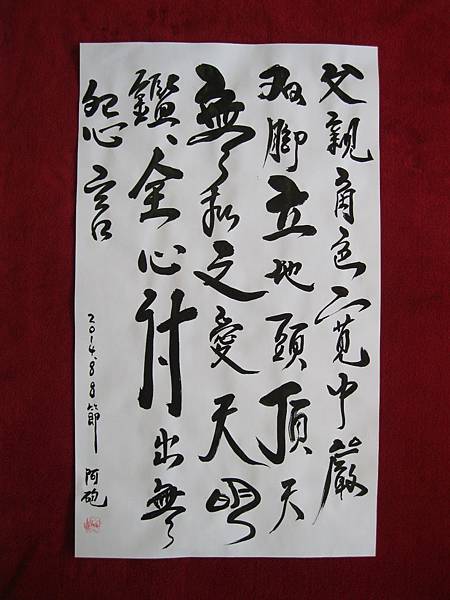 父親角色寬中嚴
双腳立地頭頂天
無私之愛天明
鑑、全心付出無
怨言
2014.8.8節 阿砲